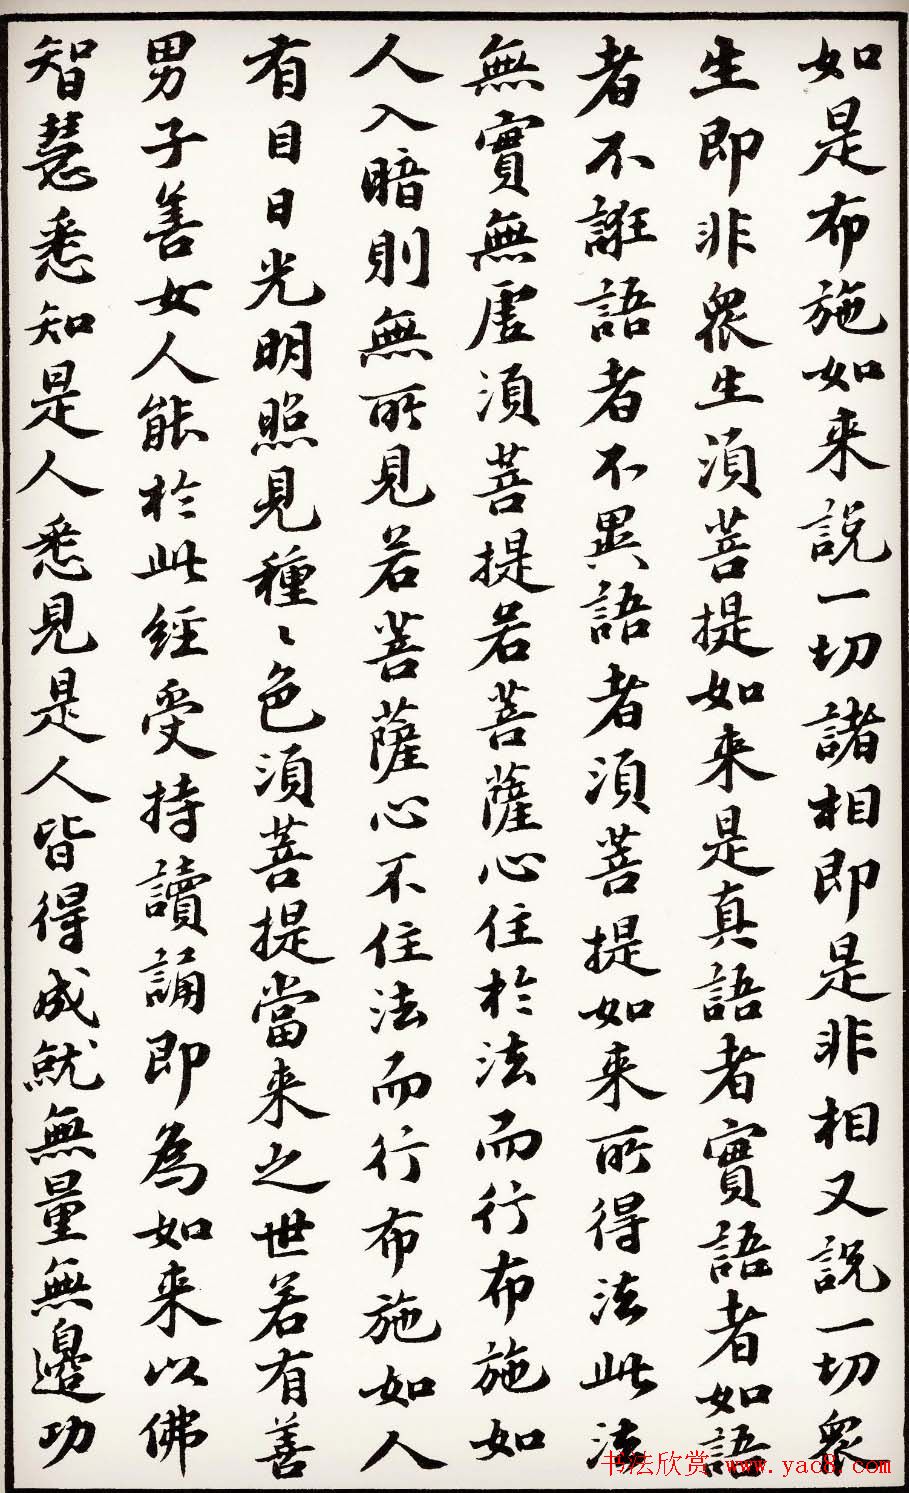 如是布施如来說一切諸相即是非相又說一切衆
生即非衆生湏菩提如来是真語者實語者如語
者不誑語者不異語者湏菩提如来所得法此法
無實無虛湏菩提若菩薩心住於法而行布施如
人入暗則無所見若菩薩心不住法而行布施如人
有目日光明照見種〻色湏菩提當来之世若有善
男子善女人能於此經受持讀誦即為如来以佛
智慧悉知是人悉見是人皆得成就無量無邊功
书法欣赏 www.yac8.com